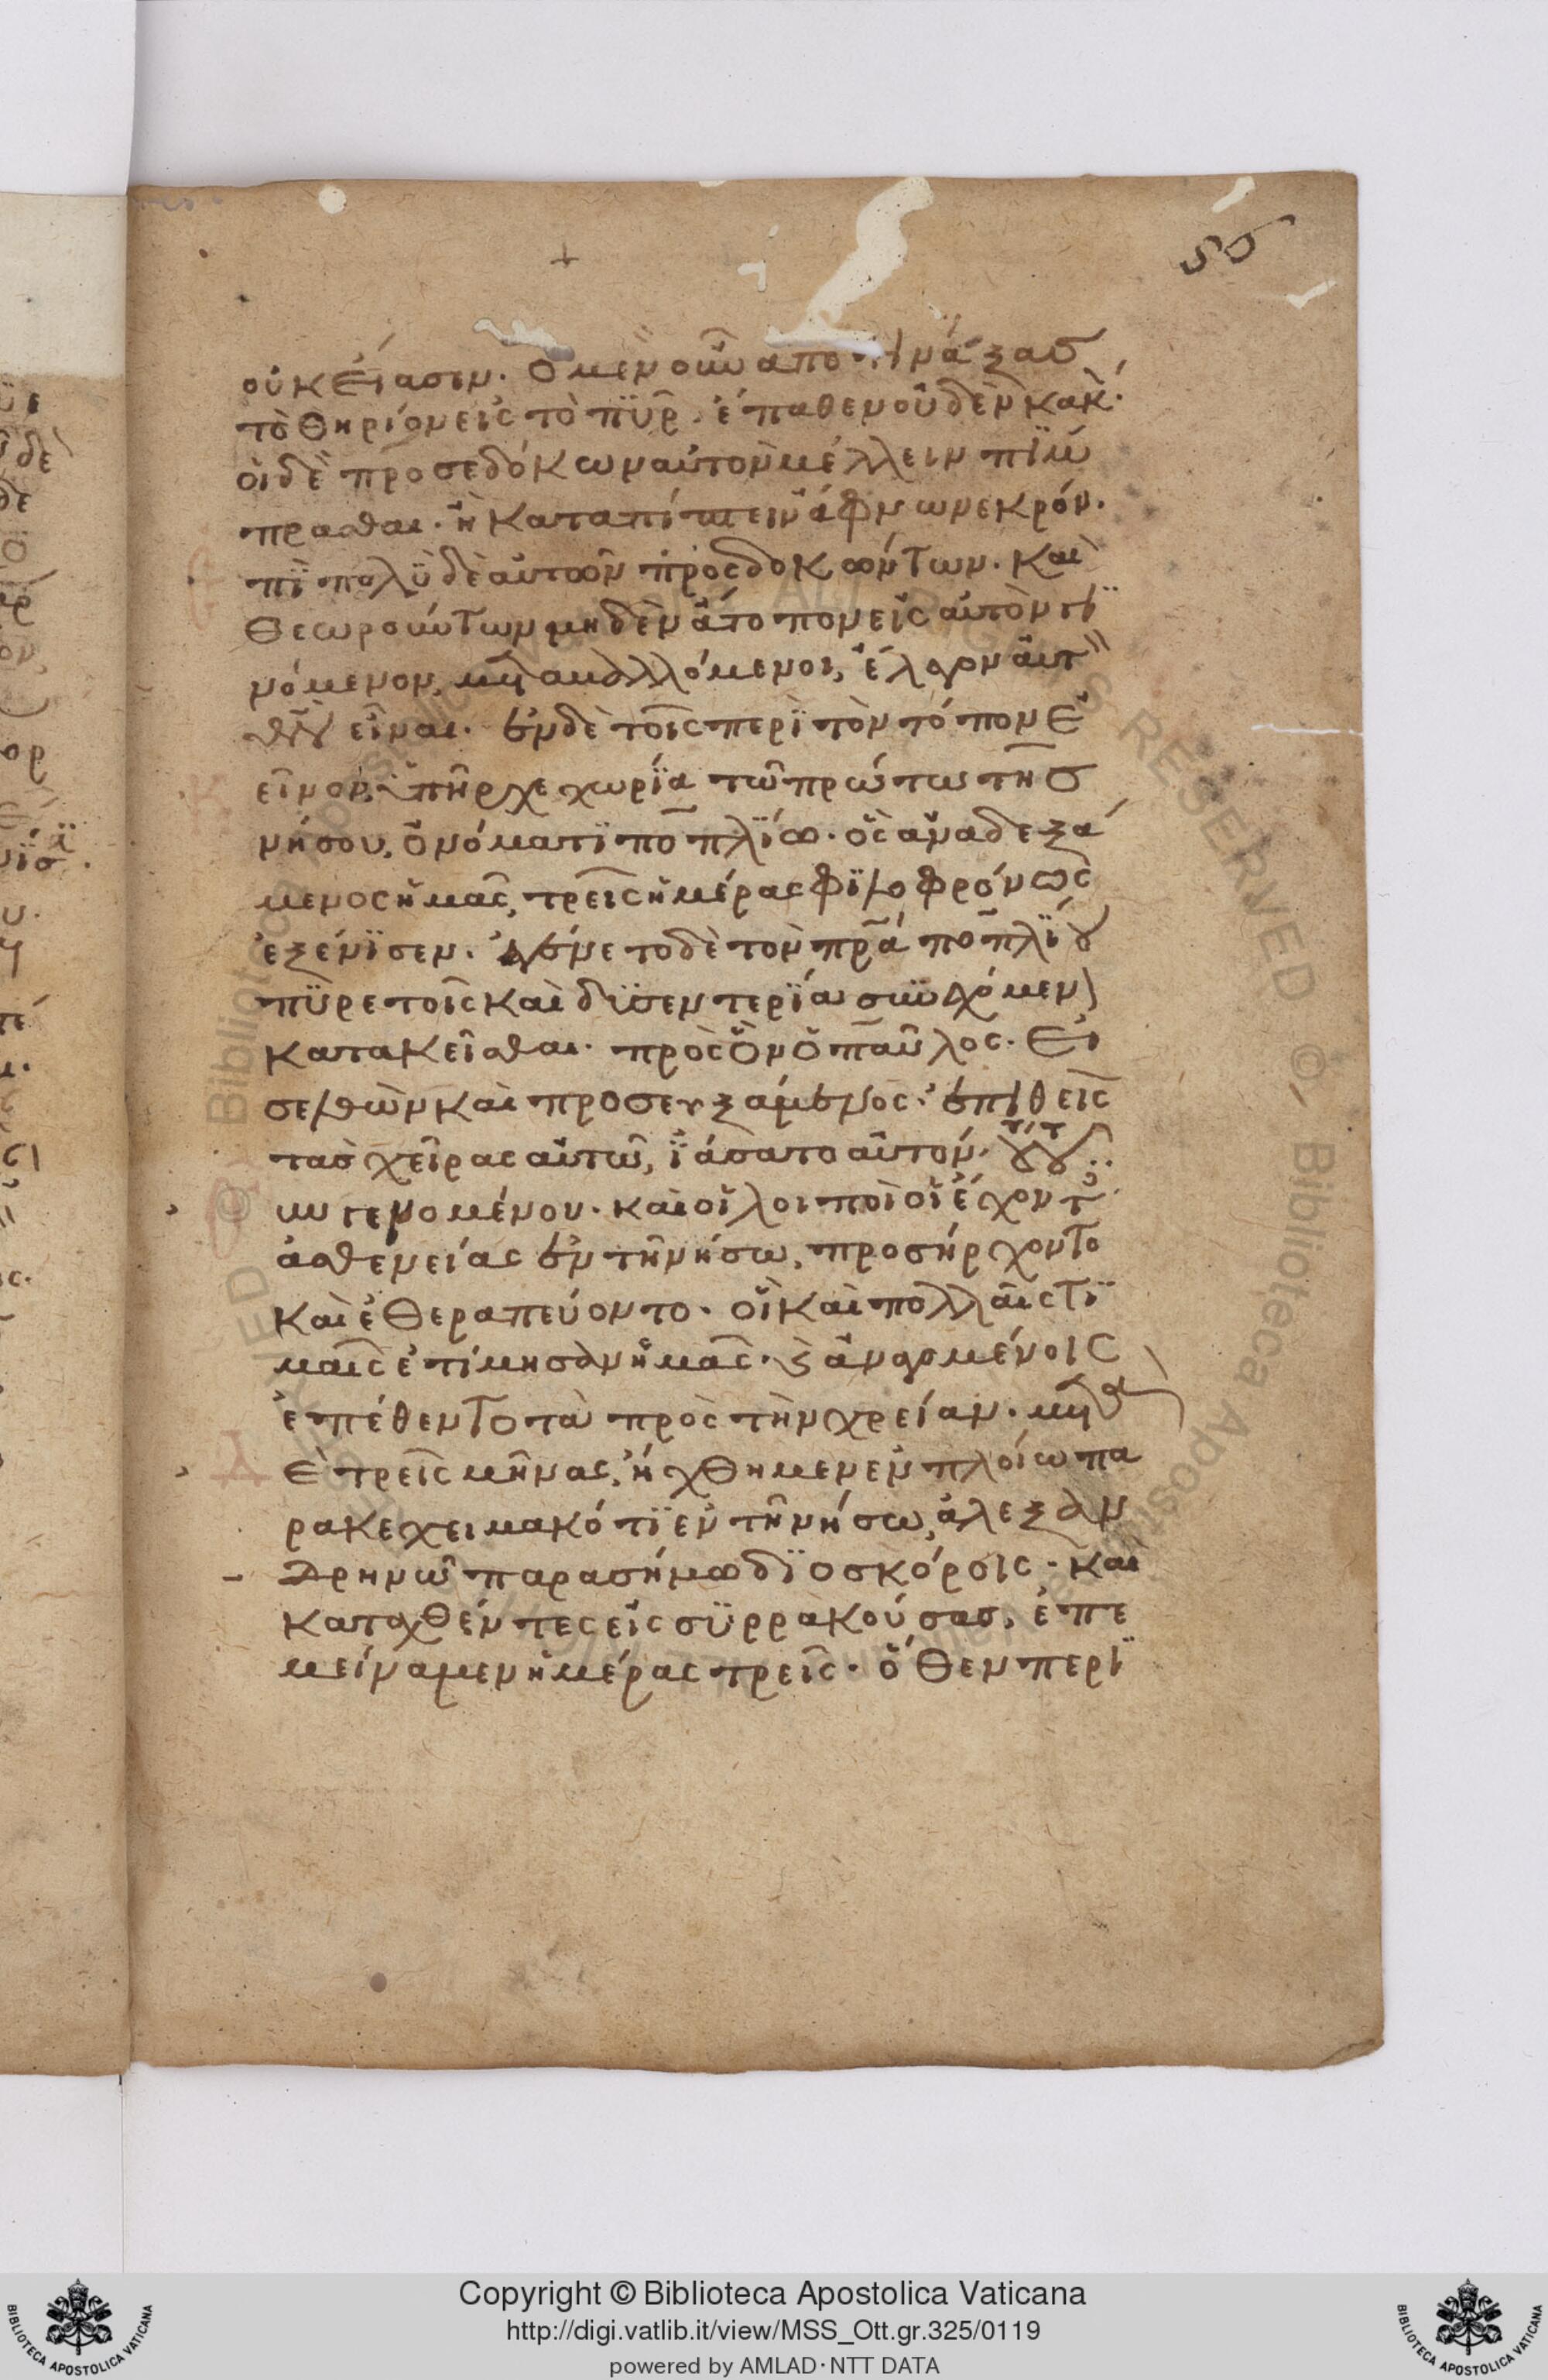 56
οὐκ εἴασεν. Ὁ μὲν οὖν ἀποτινάξας
τὸ θηρίον εἰς τὸ πϋρ. ἔπαθεν οὐδὲν κακ.
οἱ δὲ προσεδόκων αὐτὸν μέλλειν πίμ
πρασθαι. ἢ καταπίπτειν ἄφνω νεκρόν.
πϊ πολϋ δὲ αὐτῶν προσδοκώντων. καὶ
θεωρούντων μηδὲν ἄτοπον εἰς αὐτὸν γι
νόμενον, μεταβαλλόμενοι, ἔλεγον αὐτ
θν εἶναι. ἐν δὲ τοῖς περὶ τὸν τόπον ἐ
εῖνον, ὑπῆρχε χωρία τῶ πρώτω τῆς
νήσου, ὀνόματϊ ποπλϊω. ὃς ἀναδεξά
μενος ἡμᾶς, τρεῖς ἡμέρας φϊλοφρόνως
ἐξένϊσεν. ἐγένετο δὲ τὸν πρα ποπλίου
πϋρετοῖς καὶ δϋσεντερία συνεχόμεν
κατακεῖσθαι. πρὸς ὃν ὁ παῦλος. εἰ
σελθὼν καὶ προσευξάμενος. ἐπιθεὶς
τὰς χεῖρας αὐτῶ, ἰάσατο αὐτόν. τούτου
οὖν γενομένου. καὶ οἱ λοιποὶ οἱ ἔχοντ
ἀσθενείας ἐν τῆ νήσω, προσήρχοντο
καὶ ἐθεραπεύοντο. οἳ καὶ πολλαῖς τϊ
μαῖς ἐτίμησαν ἡμᾶς. καὶ ἀναγομένοις
ἐπέθεντο τὰ πρὸς τὴν χρείαν. μετὰ
δὲ τρεῖς μῆνας, ἤχθημεν ἐν πλοίω πα
ρακεχειμακότϊ ἐν τῆ νήσω, ἀλεξαν
δρηνῶ παρασήμω δϊοσκόροις. καὶ
καταχθέντες εἰς σϋρρακούσας, ἐπε
μείναμεν ἡμέρας τρεῖς. ὅθεν περι
Copyright © Biblioteca Apostolica Vaticana
http://digi.vatlib.it/view/MSS_Ott.gr.325/0119
powered by AMLAD·NTT DATA